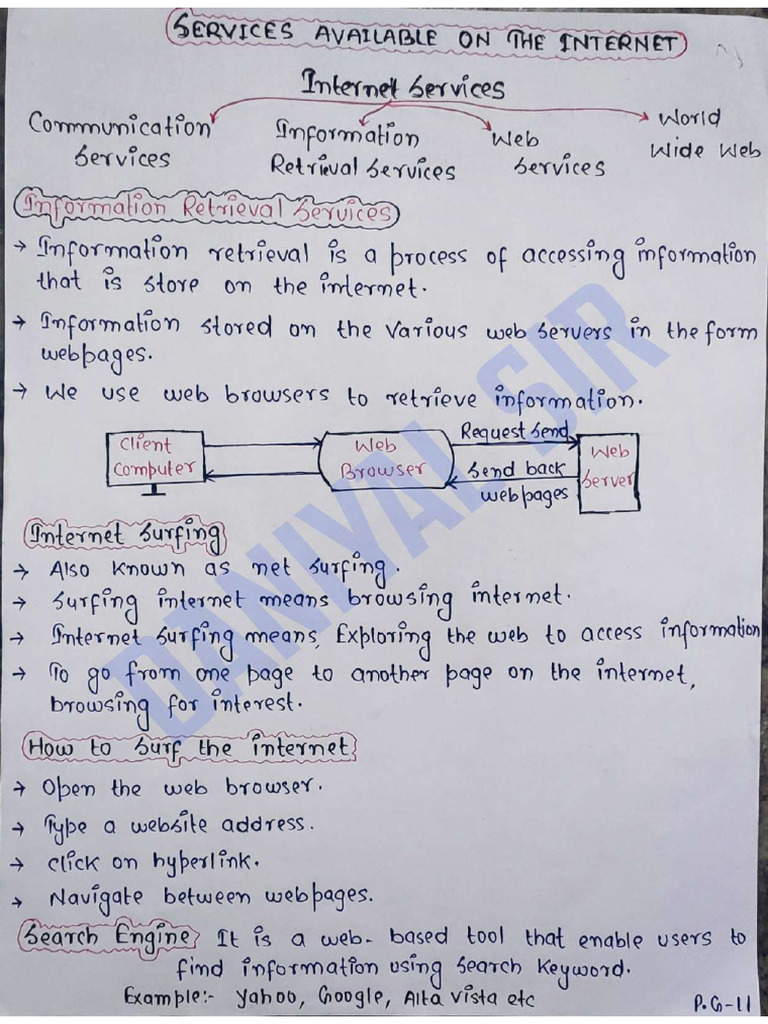 SERVICES AVAILABLE ON THE INTERNET
Internet Services
Communication Services
Information Retrieval Services
Web Services
World Wide Web
Information Retrieval Services
→ Information retrieval is a process of accessing information
that is store on the internet.
→ Information stored on the various web servers in the form
webpages.
→ We use web browsers to retrieve information.
Client Computer
Web Browser
Request Send
Send back webpages
Web Server
Internet Surfing
→ Also known as net surfing.
→ Surfing internet means browsing internet.
→ Internet surfing means, Exploring the web to access information
→ To go from one page to another page on the internet,
browsing for interest.
How to Surf the internet
→ Open the web browser.
→ Type a website address.
→ Click on hyperlink.
→ Navigate between webpages.
Search Engine It is a web-based tool that enable users to
find information using Search Keyword.
Example:- Yahoo, Google, Alta Vista etc
P.G-11
DANIYAL SIR